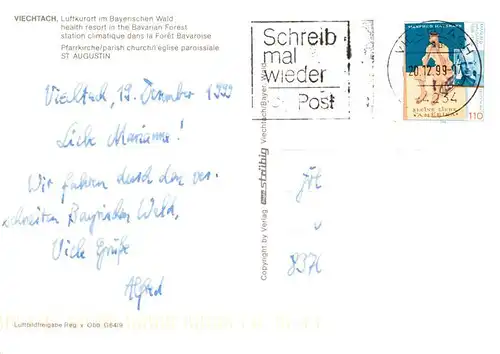 VIECHTACH, Luftkurort im Bayerischen Wald
health resort in the Bavarian Forest
station climatique dans la Forêt Bavaroise
Pfarrkirche/parish church/l'église paroissiale
ST AUGUSTIN
Viechtach, 19. Dezember 1999
Liebe Marianne!
Wir fahren durch den ver-
schneiten Bayrischen Wald,
Viele Grüße
Alfred
Luftbildfreigabe Reg. v. Obb. G84/9
Copyright by Verlag stribig Viechtach/Bayer. Wald
Schreib
mal
wieder
Post
20.12.99
94234
110
8370